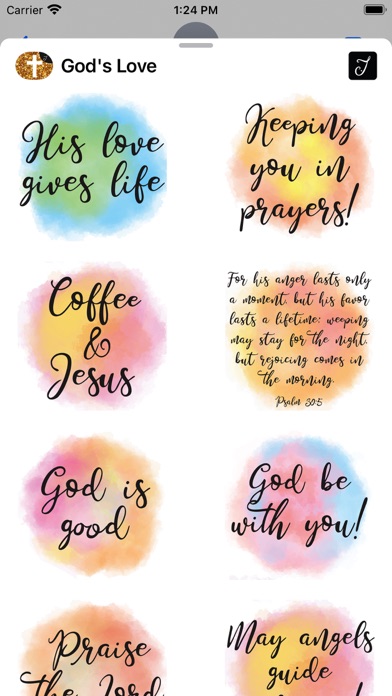 Carrier 1:24 PM
God's Love
His love
gives life
Keeping
you in
prayers!
Coffee
&
Jesus
For his anger lasts only
a moment, but his favor
lasts a lifetime; weeping
may stay for the night,
but rejoicing comes in
the morning.
Psalm 30:5
God is
good
God be
with you!
Praise
the Lord
May angels
guide